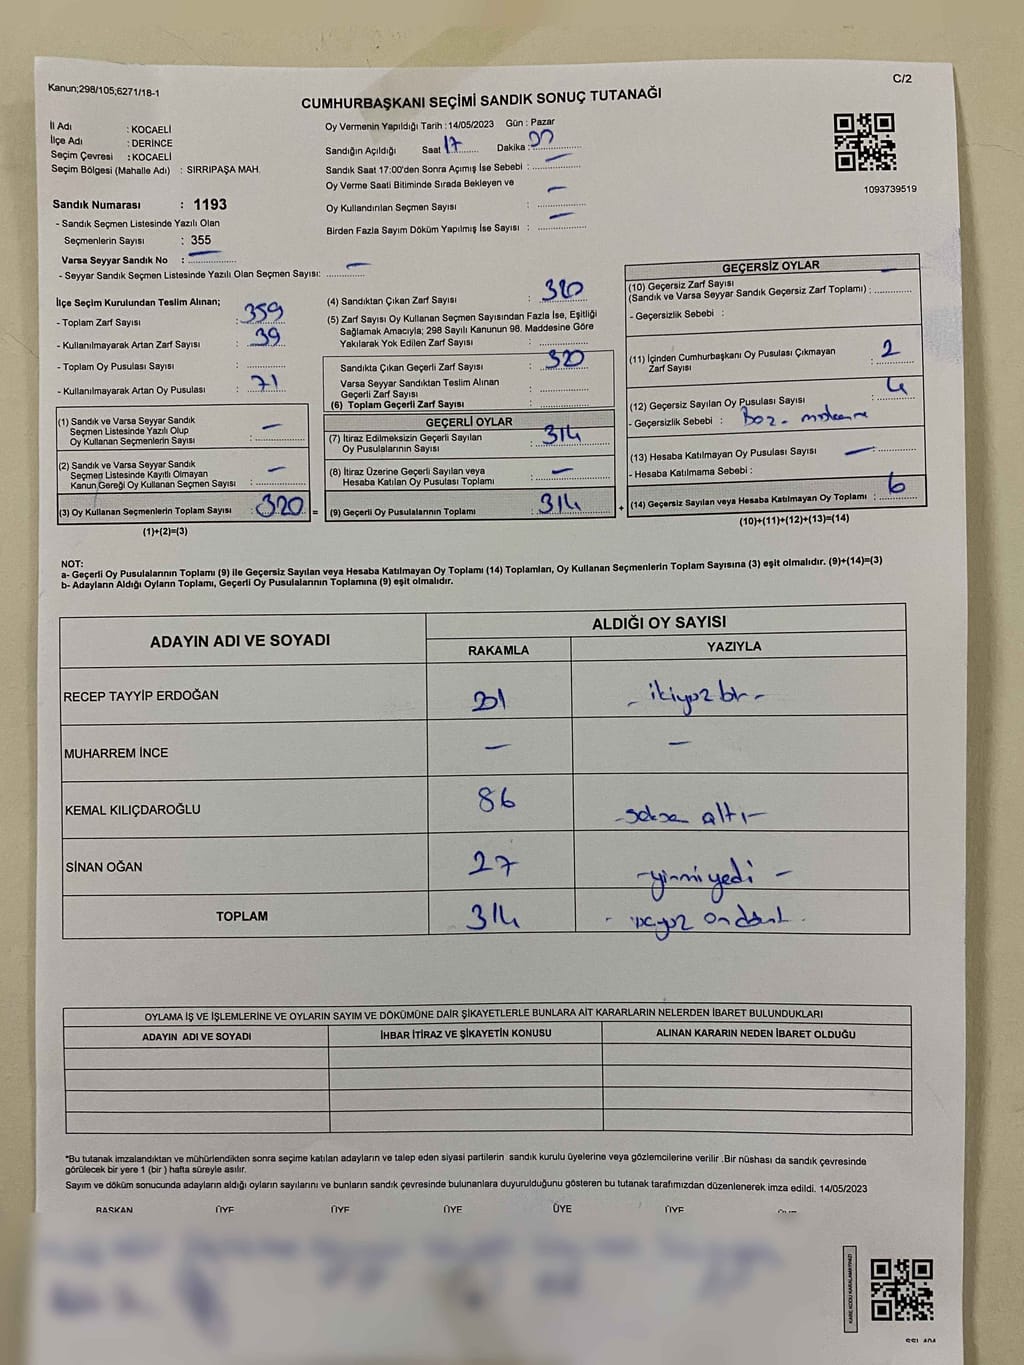 Kanun;298/105;6271/18-1
C/2
CUMHURBAŞKANI SEÇİMİ SANDIK SONUÇ TUTANAĞI
İl Adı : KOCAELİ
İlçe Adı : DERİNCE
Seçim Çevresi : KOCAELİ
Seçim Bölgesi (Mahalle Adı) : SIRRIPAŞA MAH.
Oy Vermenin Yapıldığı Tarih : 14/05/2023 Gün : Pazar
Sandığın Açıldığı Saat 17 Dakika :
Sandık Saat 17:00'den Sonra Açımış İse Sebebi : –
Oy Verme Saati Bitiminde Sırada Bekleyen ve –
Oy Kullandırılan Seçmen Sayısı : –
Birden Fazla Sayım Döküm Yapılmış İse Sayısı :
1093739519
Sandık Numarası : 1193
- Sandık Seçmen Listesinde Yazılı Olan
Seçmenlerin Sayısı : 355
Varsa Seyyar Sandık No : –
- Seyyar Sandık Seçmen Listesinde Yazılı Olan Seçmen Sayısı: –
İlçe Seçim Kurulundan Teslim Alınan;
- Toplam Zarf Sayısı : 359
- Kullanılmayarak Artan Zarf Sayısı : 39
- Toplam Oy Pusulası Sayısı :
- Kullanılmayarak Artan Oy Pusulası : 71
(1) Sandık ve Varsa Seyyar Sandık
Seçmen Listesinde Yazılı Olup
Oy Kullanan Seçmenlerin Sayısı : –
(2) Sandık ve Varsa Seyyar Sandık
Seçmen Listesinde Kayıtlı Olmayan
Kanun Gereği Oy Kullanan Seçmen Sayısı : –
(3) Oy Kullanan Seçmenlerin Toplam Sayısı : 320 =
(1)+(2)=(3)
(4) Sandıktan Çıkan Zarf Sayısı : 320
(5) Zarf Sayısı Oy Kullanan Seçmen Sayısından Fazla İse, Eşitliği
Sağlamak Amacıyla; 298 Sayılı Kanunun 98. Maddesine Göre
Yakılarak Yok Edilen Zarf Sayısı :
Sandıkta Çıkan Geçerli Zarf Sayısı : 320
Varsa Seyyar Sandıktan Teslim Alınan
Geçerli Zarf Sayısı :
(6) Toplam Geçerli Zarf Sayısı :
GEÇERLİ OYLAR
(7) İtiraz Edilmeksizin Geçerli Sayılan
Oy Pusulasının Sayısı : 314
(8) İtiraz Üzerine Geçerli Sayılan veya
Hesaba Katılan Oy Pusulası Toplamı : –
(9) Geçerli Oy Pusulalarının Toplamı : 314 +
GEÇERSİZ OYLAR
(10) Geçersiz Zarf Sayısı –
(Sandık ve Varsa Seyyar Sandık Geçersiz Zarf Toplamı) :
- Geçersizlik Sebebi :
(11) İçinden Cumhurbaşkanı Oy Pusulası Çıkmayan
Zarf Sayısı : 2
(12) Geçersiz Sayılan Oy Pusulası Sayısı : 4
- Geçersizlik Sebebi :
(13) Hesaba Katılmayan Oy Pusulası Sayısı – :
- Hesaba Katılmama Sebebi :
(14) Geçersiz Sayılan veya Hesaba Katılmayan Oy Toplamı : 6
(10)+(11)+(12)+(13)=(14)
NOT:
a- Geçerli Oy Pusulalarının Toplamı (9) ile Geçersiz Sayılan veya Hesaba Katılmayan Oy Toplamı (14) Toplamları, Oy Kullanan Seçmenlerin Toplam Sayısına (3) eşit olmalıdır. (9)+(14)=(3)
b- Adayların Aldığı Oyların Toplamı, Geçerli Oy Pusulalarının Toplamına (9) eşit olmalıdır.
ADAYIN ADI VE SOYADI
ALDIĞI OY SAYISI
RAKAMLA YAZIYLA
RECEP TAYYİP ERDOĞAN 201 - ikiyüz bir -
MUHARREM İNCE – –
KEMAL KILIÇDAROĞLU 86 - seksen altı -
SİNAN OĞAN 27 - yirmi yedi -
TOPLAM 314 - üçyüz ondört -
OYLAMA İŞ VE İŞLEMLERİNE VE OYLARIN SAYIM VE DÖKÜMÜNE DAİR ŞİKAYETLERLE BUNLARA AİT KARARLARIN NELERDEN İBARET BULUNDUKLARI
ADAYIN ADI VE SOYADI İHBAR İTİRAZ VE ŞİKAYETİN KONUSU ALINAN KARARIN NEDEN İBARET OLDUĞU
*Bu tutanak imzalandıktan ve mühürlendikten sonra seçime katılan adayların ve talep eden siyasi partilerin sandık kurulu üyelerine veya gözlemcilerine verilir .Bir nüshası da sandık çevresinde
görülecek bir yere 1 (bir ) hafta süreyle asılır.
Sayım ve döküm sonucunda adayların aldığı oyların sayılarını ve bunların sandık çevresinde bulunanlara duyurulduğunu gösteren bu tutanak tarafımızdan düzenlenerek imza edildi. 14/05/2023
BAŞKAN ÜYE ÜYE ÜYE ÜYE ÜYE
KARE KODU KARALAMAYINIZ!